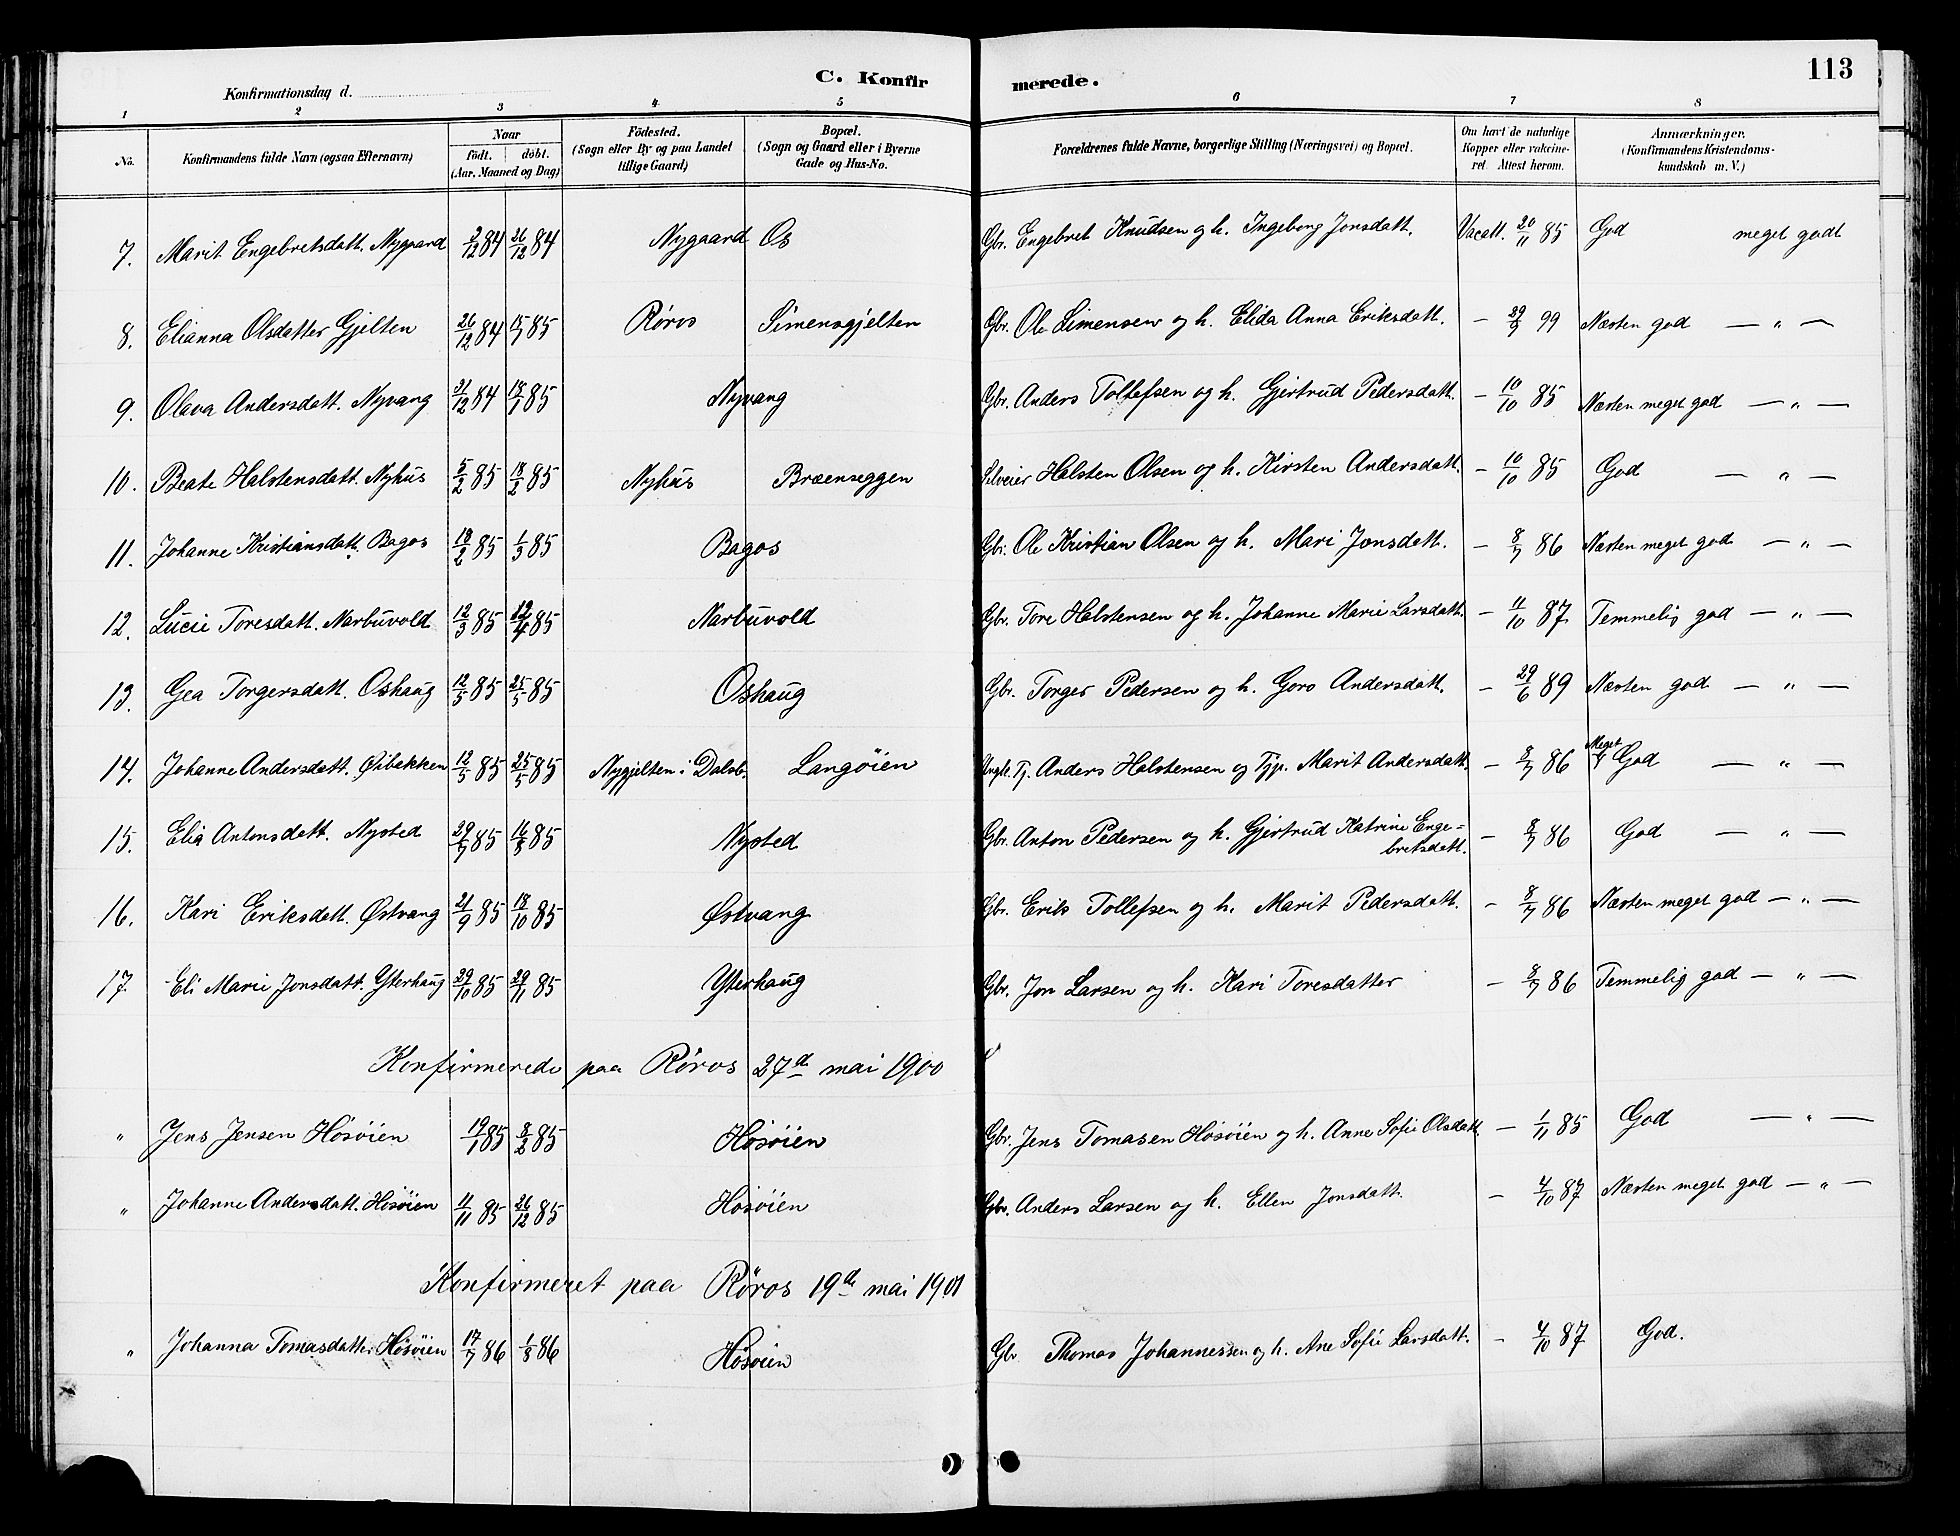 113
C. Konfirmerede.
Konfirmationsdag d.
1 2 3 4 5 6 7 8
No. Konfirmandens fulde Navn (ogsaa Efternavn) Naar födt. döbt. (Aar, Maaned og Dag) Födested. (Sogn eller By og paa Landet tillige Gaard) Bopæl. (Sogn og Gaard eller i Byerne Gade og Hus-No. Forældrenes fulde Navne, borgerlige Stilling (Næringsvei) og Bopæl. Om havt de naturlige Kopper eller vakcineret Attest herom. Anmærkninger. (Konfirmandens Kristendomskundskab m. V.)
7. Marit Engebretsdatt. Nygaard 2/12 84 26/12 84 Nygaard Os Gbr. Engebret Knudsen og h. Ingeborg Jonsdatt. Vacatt. 20/11 85 God meget godt
8. Elianna Olsdatter Gjelten 26/12 84 15/1 85 Røros Simensgjelten Gbr. Ole Simensen og h. Elida Anna Eriksdatt. — 29/9 99 Næsten god — „ —
9. Olava Andersdatt. Nyvang 31/12 84 18/1 85 Nyvang Gbr. Anders Tollefsen og h. Gjertrud Pedersdatt. — 10/10 85 Næsten meget god — „ —
10. Beate Halstensdatt. Nyhus 5/2 85 18/2 85 Nyhus Bræenseggen Selveier Halsten Olsen og h. Kirsten Andersdatt. — 10/10 85 God — „ —
11. Johanne Kristiansdatt. Bagos 18/2 85 1/3 85 Bagos Gbr. Ole Kristian Olsen og h. Mari Jonsdatt. — 8/7 86 Næsten meget god — „ —
12. Lucie Toresdatt. Narbuvold 12/3 85 12/4 85 Narbuvold Gbr. Tore Halstensen og h. Johanne Marie Larsdatt. — 11/10 87 Temmelig god — „ —
13. Gea Torgersdatt. Oshaug 12/5 85 25/5 85 Oshaug Gbr. Torger Pedersen og h. Goro Andersdatt. — 29/6 89 Næsten god — „ —
14. Johanne Andersdatt. Øibakken 12/5 85 25/5 85 Nygjelten i Dalsb. Langøien Ungk. Tj. Anders Halstensen og Tjp. Marit Andersdatt. — 8/7 86 Meget God — „ —
15. Elia Antonsdatt. Nysted 29/7 85 16/8 85 Nysted Gbr. Anton Pedersen og h. Gjertrud Katrine Engebretsdatt. — 8/7 86 God — „ —
16. Kari Eriksdatt. Østvang 21/9 85 18/10 85 Østvang Gbr. Erik Tollefsen og h. Marit Pedersdatt. — 8/7 86 Næsten meget god — „ —
17. Eli Marie Jonsdatt. Ytterhaug 29/10 85 29/11 85 Ytterhaug Gbr. Jon Larsen og h. Kari Toresdatter — 8/7 86 Temmelig god — „ —
Konfirmerede paa Röros 27d mai 1900
„ Jens Jensen Høsøien 19/1 85 8/2 85 Høsøien Gbr. Jens Tomasen Høsøien og h. Anne Sofie Olsdatt. — 1/11 85 God — „ —
„ Johanne Andersdatt. Høsøien 11/11 85 26/12 85 Høsøien Gbr. Anders Larsen og h. Ellen Jonsdatt. — 4/10 87 Næsten meget god — „ —
Konfirmeret paa Röros 19d mai 1901
„ Johanna Tomasdatter Høsøien 17/7 86 1/8 86 Høsøien Gbr Thomas Johannessen og h. Ane Sofie Larsdatt. — 4/10 87 God.